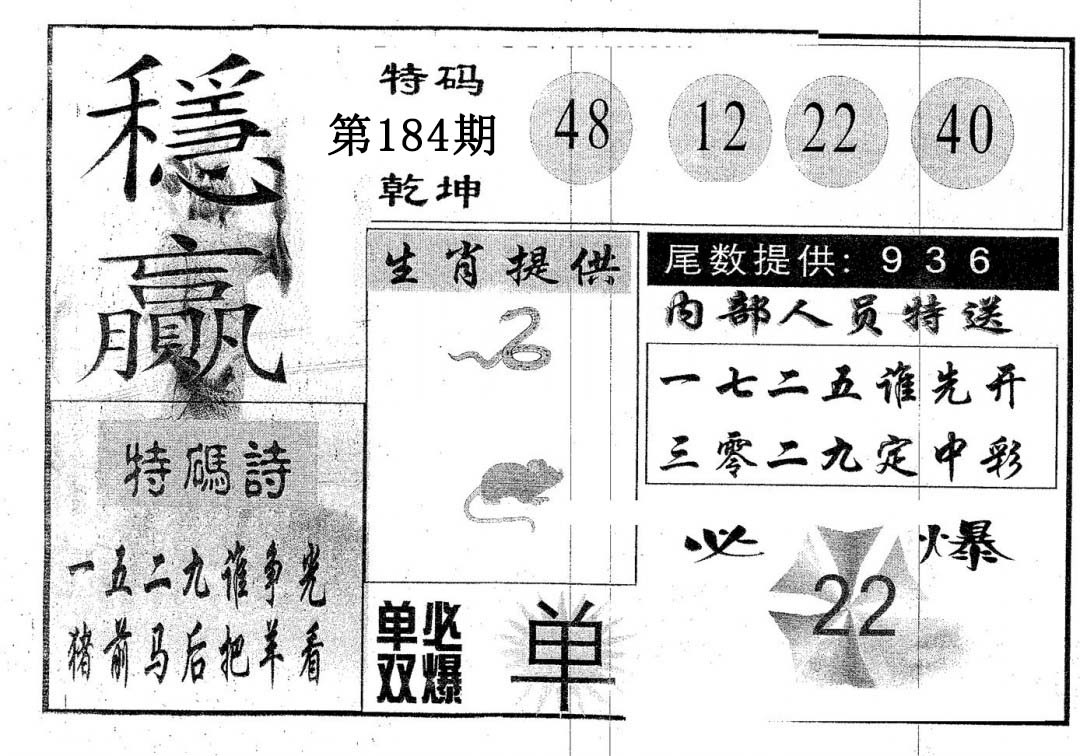 穩贏
特码
第184期
乾坤
48 12 22 40
生肖提供
尾数提供: 9 3 6
内部人员特送
一七二五谁先开
三零二九定中彩
特碼詩
一五二九谁争光
猪前马后把羊看
单双必爆
单
必爆
22